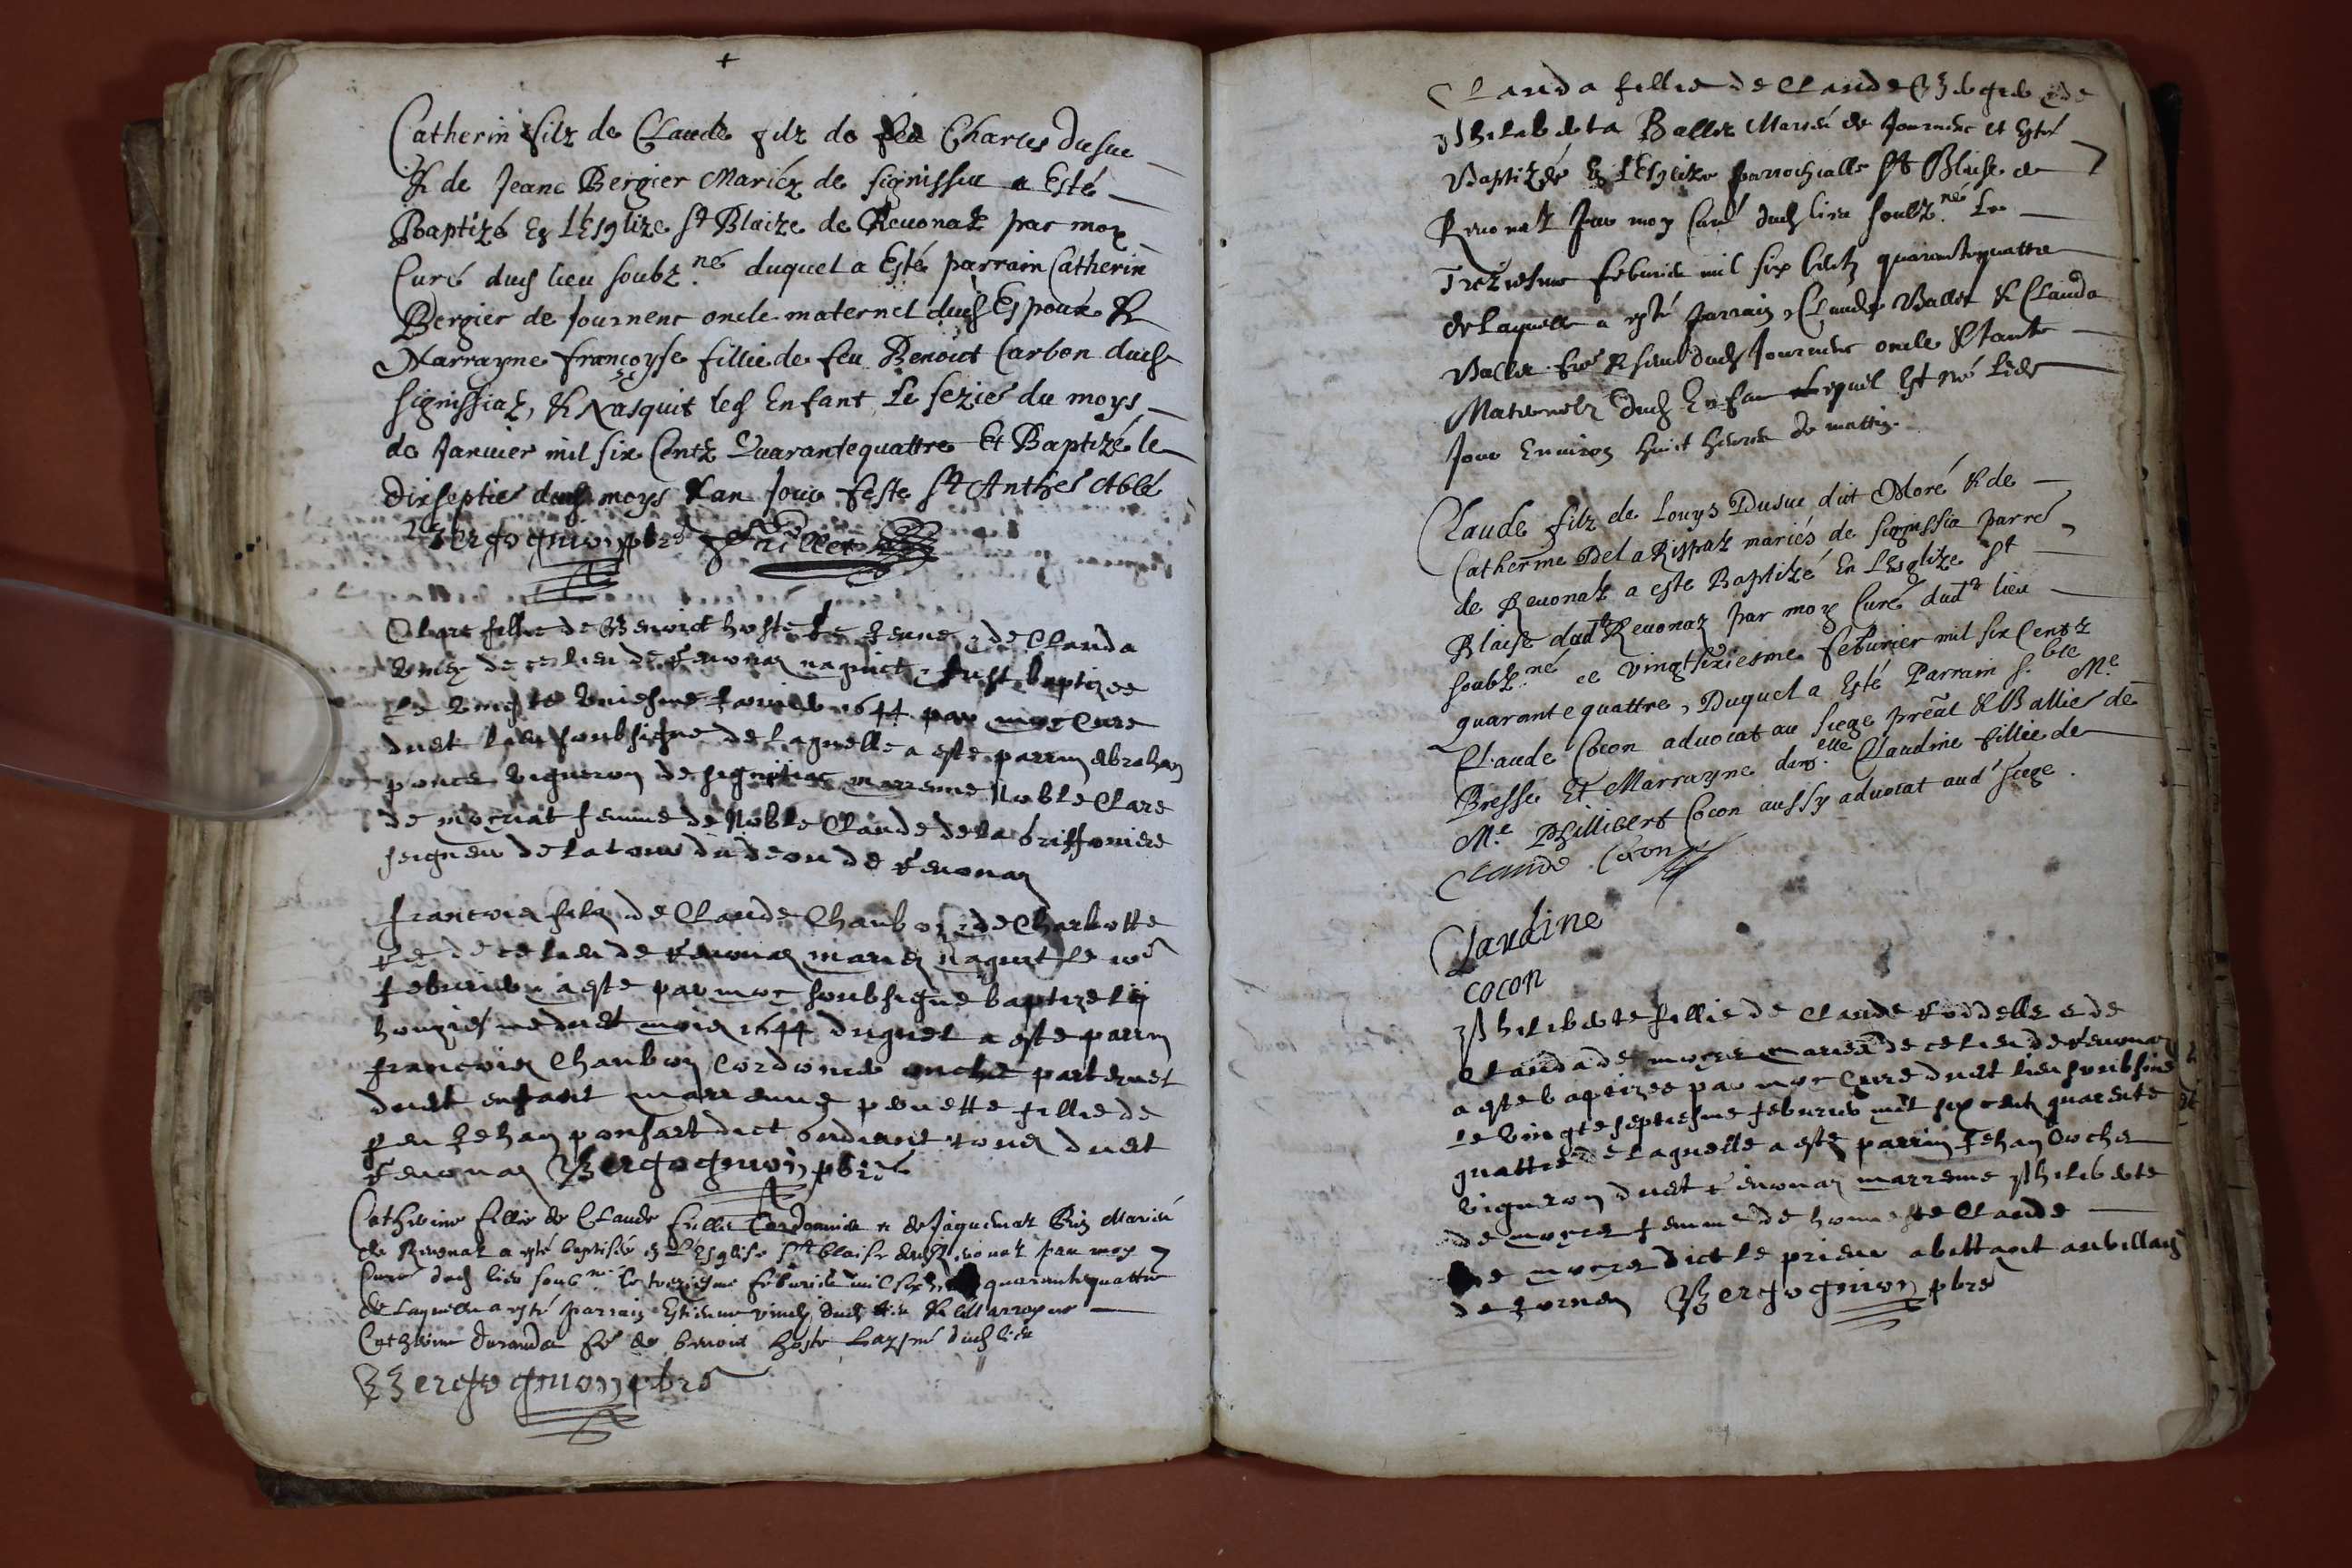 Catherin filz de Claude filz de feu Charles Dusuc
& de Jeane Bergier Mariéz de Signissia a Esté
Baptizé En L'Esglize St Blaize de Reuonaz par moy
Curé dud lieu soubz.né duquel a Esté parrain Catherin
Bergier de Journenc oncle maternel dud Espoux &
Marrayne francoyse fillie de feu Benoict Carbon dud
Signissiaz, & Nasquit led Enfant Le sezie du moys
de Januier mil six Centz Quarantequattre Et Baptizé le
dixseptie dud moys & an Jour feste St Anthe Abbé
Bergognion pbre
Clare fillie de Benoict hoste et de Clauda
de ce lieu de Reuonaz naquict fust baptizee
Le vingte vniesme Januier 1644 par moy Cure
duct lieu soubsigne de laquelle a este parrin Abraham
ponce vigneron de Signissiac marrenne Noble Clare
de moyriat femme de Noble Claude de la briffoniere
seigneur de la tour du deou de Reuonaz
francois filz de Claude Chanbon & de Charlotte
de ce lieu de Reuonaz mariez naquit le
feburier a este par moy soubsigne baptize le
honziesme duct mois 1644 duquel a este parrin
francois Chanbon Cordonier oncle paternel
duct enfant marrenne peronette fillie de
feu Jehan ponsart dict duct
Reuonaz Bergognion pbre
Catherine fillie de Claude Cordonnier & de Jaquemaz Mariés
de Reuonaz a esté baptisée en L'Esglise St Blaise dud Reuonaz par moy
Curé dud lieu soub.né Le treziesme feburier mil six quarantequattre
de Laquelle a esté parrain Estienne dud lieu & Marrayne
Catherine Durandaz fe de benoict hoste Laysné dud lieu
Bergognion pbre
Clauda fillie de Claude & de
Philiberta Ballet Mariés de Journenc et Esté
Baptizée En L'Esglize parrochialle St Blaise de
Reuonaz Par moy Curé dud lieu soubz.né Le
Treziesme feburier mil six Centz quarantequattre
de Laquelle a esté parrain Claude Ballet & Clauda
Ballet fre & seur dud Journenc oncle & tante
Maternelz dud Enfan Lequel Est né Led
Jour Enuiron huict heures de mattin.
Claude filz de Louys Dusuc dit Moré & de
Catherine De la Rispaz mariés de Signissia parre
de Reuonaz a este Baptizé En L'Esglize St
Blaise dudt Reuonaz par moy Curé dudt lieu
soubz.né ce vingtsixiesme feburier mil six Centz
quarantequattre, Duquel a Esté Parrain h.ble Me
Claude Cocon aduocat au siege preal & Balliee de
Bresse Et Marrayne dam.elle Claudine fillie de
Me Phillibert Cocon aussy aduocat audt siege.
Claude Cocon
Claudine
cocon
Philiberte fillie de Claude Roddelle & de
Clauda de mariez de ce lieu de Reuonaz
a este baptizee par moy Cure duct lieu soubsine
Le vingte septiesme feburier mil six centz quarente
quattre de laquelle a este parrin Jehan
vigneron duct Reuonaz marrenne Philiberte
de femme de honneste Claude
de dict le prieur abittant au villaige
de Jornen Bergognion pbre